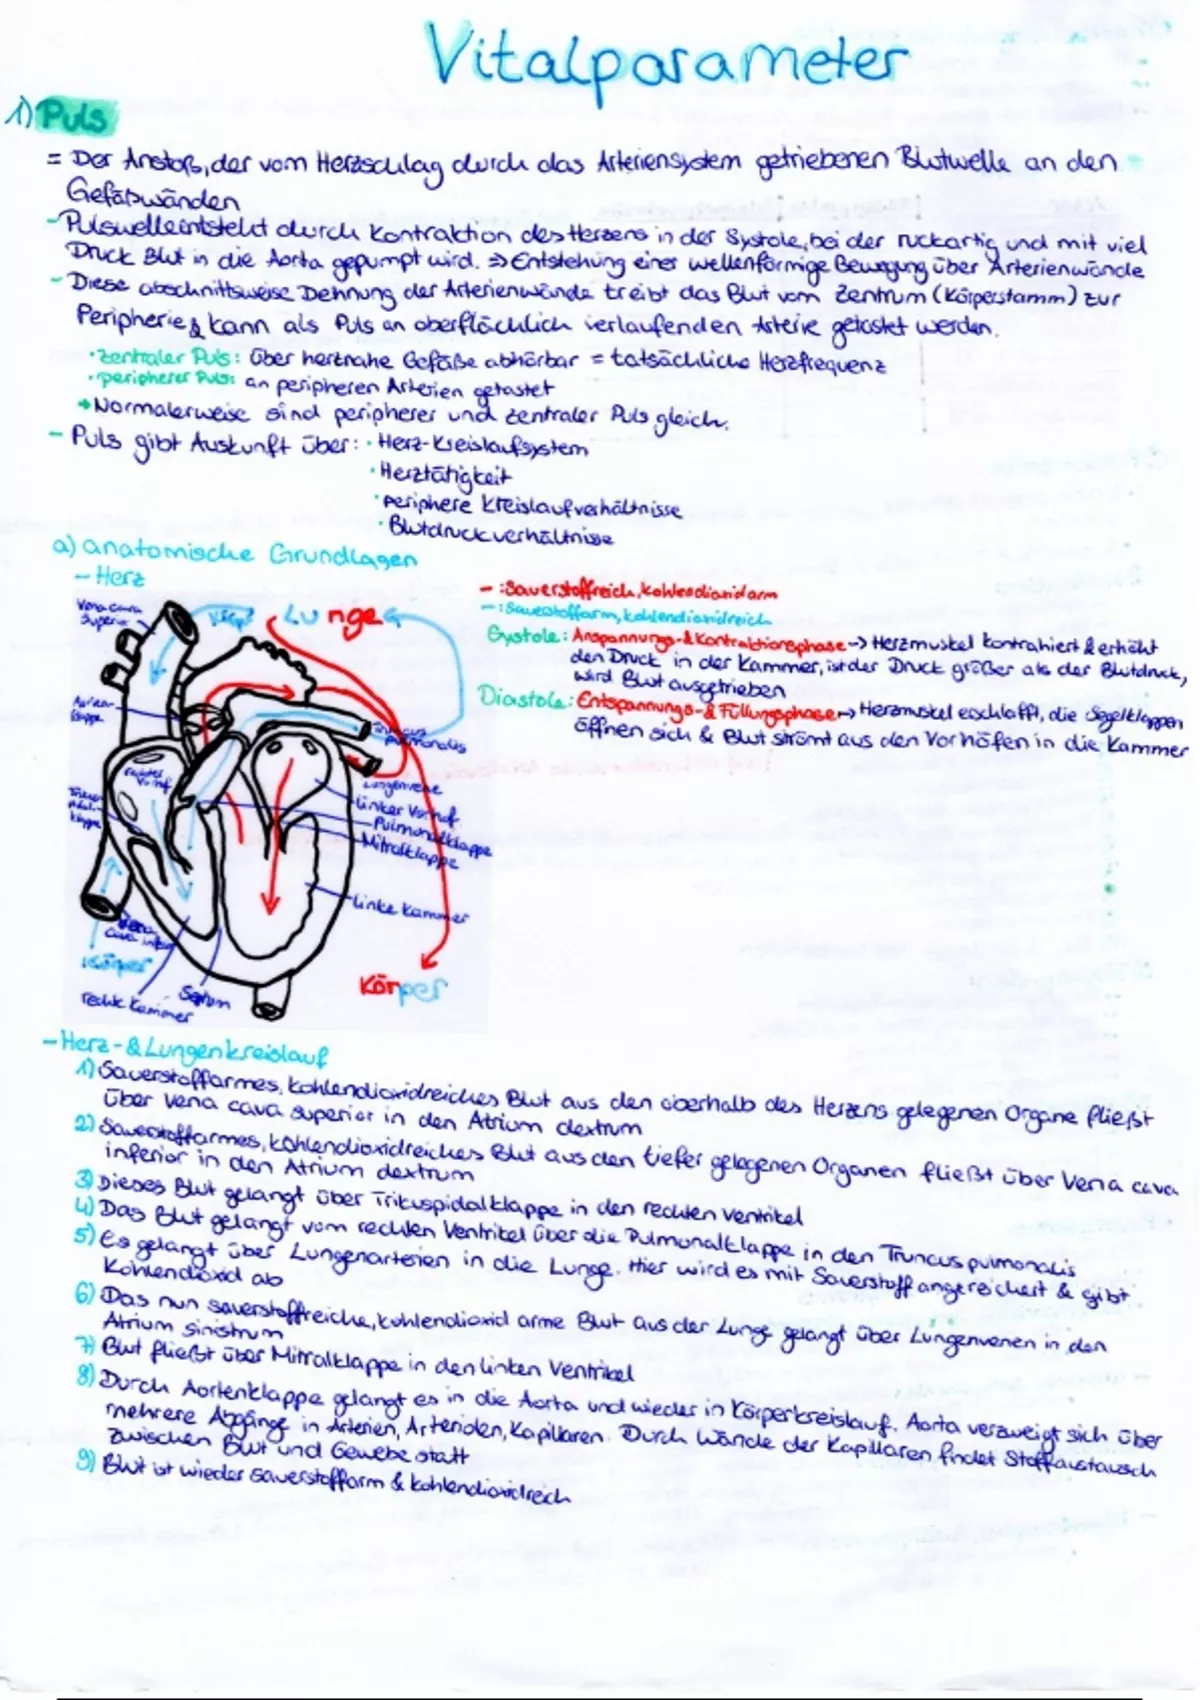 Vitalparameter
1) Puls
= Der Anstoß, der vom Herzschlag durch das Arteriensystem getriebenen Blutwelle an den
Gefäßwänden
- Pulswelle entsteht durch Kontraktion des Herzens in der Systole, bei der ruckartig und mit viel
Druck Blut in die Aorta gepumpt wird. ⇒ Entstehung einer wellenförmige Bewegung über Arterienwände
- Diese abschnittsweise Dehnung der Arterienwände treibt das Blut vom Zentrum (Körperstamm) zur
Peripherie & kann als Puls an oberflächlich verlaufenden Arterie getastet werden.
· zentraler Puls: über herznahe Gefäße abhörbar = tatsächliche Herzfrequenz
· peripherer Puls: an peripheren Arterien getastet
→ Normalerweise sind peripherer und zentraler Puls gleich.
- Puls gibt Auskunft über: · Herz-Kreislaufsystem
· Herztätigkeit
· periphere Kreislaufverhältnisse
· Blutdruckverhältnisse
a) anatomische Grundlagen
- Herz
- : Sauerstoffreich, kohlendioxidarm
- : Sauerstoffarm, kohlendioxidreich
Systole: Anspannungs- & Kontraktionsphase → Herzmuskel kontrahiert & erhöht
den Druck in der Kammer, ist der Druck größer als der Blutdruck,
wird Blut ausgetrieben
Diastole: Entspannungs- & Füllungsphase → Herzmuskel erschlafft, die Segelklappen
öffnen sich & Blut strömt aus den Vorhöfen in die Kammer
Vena cava
superior
Lunge
Truncus
pulmonalis
rechter
Vorhof
Lungenvene
linker Vorhof
Pulmonalklappe
Mitralklappe
linke Kammer
Vena
cava
Körper
Körper
Septum
rechte Kammer
- Herz- & Lungenkreislauf
1) Sauerstoffarmes, kohlendioxidreiches Blut aus den oberhalb des Herzens gelegenen Organe fließt
über Vena cava superior in den Atrium dextrum
2) Sauerstoffarmes, kohlendioxidreiches Blut aus den tiefer gelegenen Organen fließt über Vena cava
inferior in den Atrium dextrum
3) Dieses Blut gelangt über Trikuspidalklappe in den rechten Ventrikel
4) Das Blut gelangt vom rechten Ventrikel über die Pulmonalklappe in den Truncus pulmonalis
5) Es gelangt über Lungenarterien in die Lunge. Hier wird es mit Sauerstoff angereichert & gibt
Kohlendioxid ab
6) Das nun sauerstoffreiche, kohlendioxid arme Blut aus der Lunge gelangt über Lungenvenen in den
Atrium sinistrum
7) Blut fließt über Mitralklappe in den linken Ventrikel
8) Durch Aortenklappe gelangt es in die Aorta und wieder in Körperkreislauf. Aorta verzweigt sich über
mehrere Abgänge in Arterien, Arteriolen, Kapillaren. Durch Wände der Kapillaren findet Stoffaustausch
zwischen Blut und Gewebe statt
9) Blut ist wieder sauerstoffarm & kohlendioxidreich